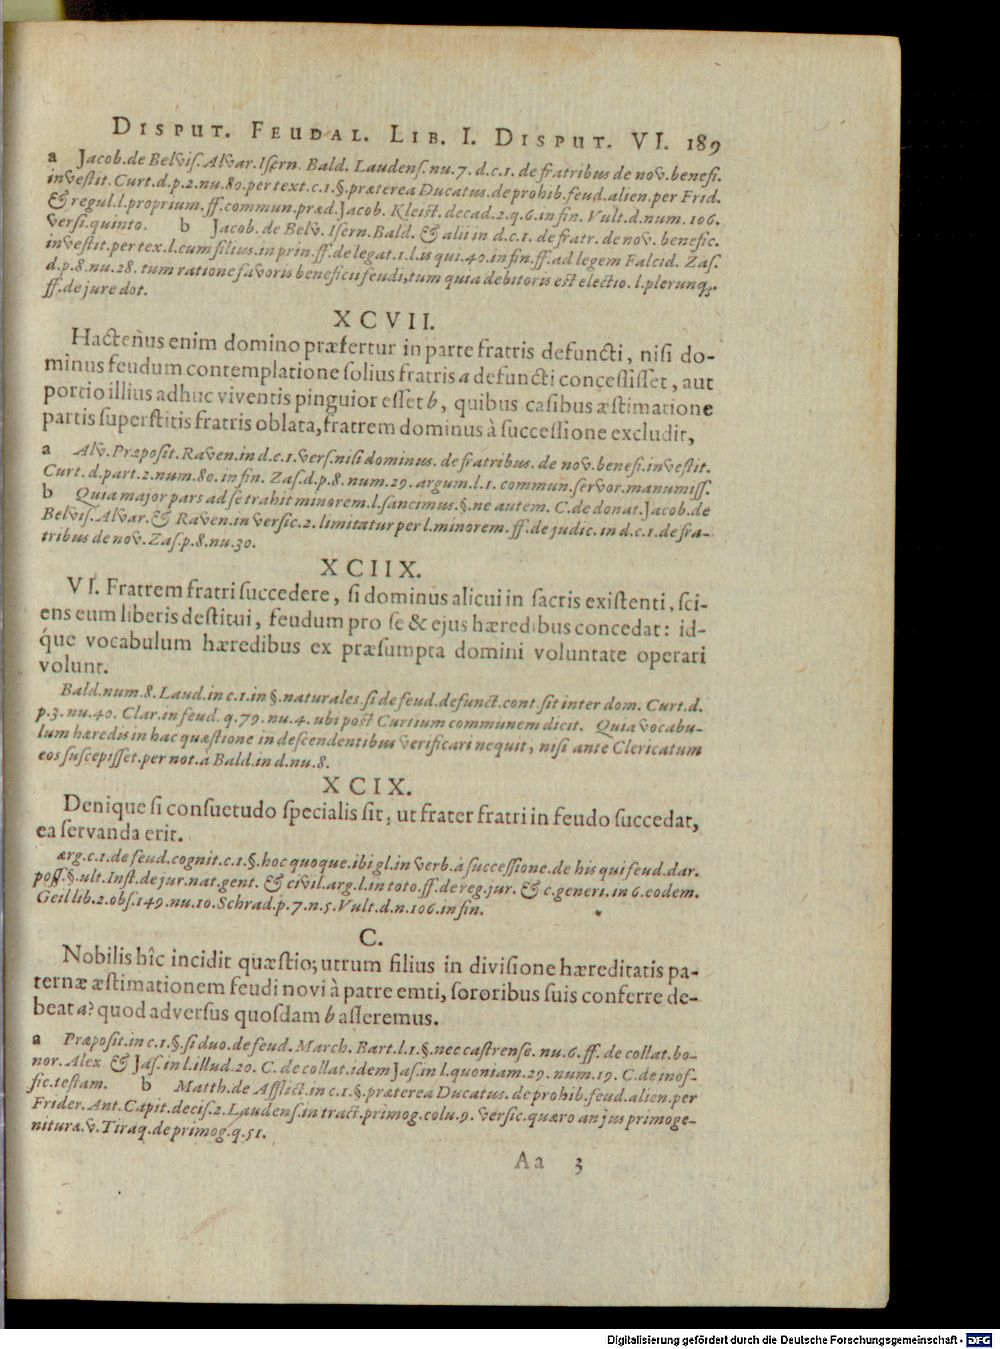 DISPUT. FEUDAL. LIB. I. DISPUT. VI. 189
a Jacob.de Belviſ. Alvar. Iſern. Bald. Laudenſ. nu. 7. d.c.1. de fratribus de nov. benefi.
inveſtit. Curt.d.p.2.nu.80. per text.c.1.§.præterea Ducatus.de prohib.feud.alien.per Frid.
& regul.l.proprium.ff.commun.præd.Jacob. Kleiſt. decad.2.q.6.in fin. Vult.d.num.106.
verſi.quinto. b Jacob. de Belv. Iſern.Bald. & alii in d.c.1. de fratr. de nov. benefic.
inveſtit.per tex.l.cum filius.in prin.ff.de legat.1.l.is qui.40.in fin.ff.ad legem Falcid. Zaſ.
d.p.8.nu.28. tum ratione favoris beneficii feudi,tum quia debitoris eſt electio. l.plerunq;.
ff.de jure dot.
XCVII.
Hactenus enim domino præfertur in parte fratris defuncti, niſi do-
minus feudum contemplatione ſolius fratris a defuncti conceſſiſſet, aut
portio illius adhuc viventis pinguior eſſet b, quibus caſibus æſtimatione
partis ſuperſtitis fratris oblata, fratrem dominus à ſucceſſione excludit,
a Alv. Præpoſit. Raven.in d.c.1.verſ.niſi dominus. de fratribus. de nov. benefi.inveſtit.
Curt. d.part.2.num.80. in fin. Zaſ.d.p.8. num.29. argum.l.1. commun.ſervor.manumiſſ.
b Quia major pars ad ſe trahit minorem.l.ſancimus.§.ne autem. C.de donat.Jacob.de
Belviſ.Alvar.& Raven.in verſic.2. limitatur per l.minorem.ff.de judic. in d.c.1.de fra-
tribus de nov. Zaſ.p.8.nu.30.
XCIIX.
VI. Fratrem fratri ſuccedere, ſi dominus alicui in ſacris exiſtenti, ſci-
ens eum liberis deſtitui, feudum pro ſe & ejus hæredibus concedat: id-
que vocabulum hæredibus ex præſumpta domini voluntate operari
volunt.
Bald.num.8. Laud.in c.1.in §.naturales.ſi de feud.defunct.cont.ſit inter dom. Curt.d.
p.3.nu.40. Clar.in feud. q.79.nu.4. ubi poſt Curtium communem dicit. Quia vocabu-
lum hæredis in hac quæſtione in deſcendentibus verificari nequit, niſi ante Clericatum
eos ſuſcepiſſet.per not.à Bald.in d.nu.8.
XCIX.
Denique ſi conſuetudo ſpecialis ſit, ut frater fratri in feudo ſuccedat,
ea ſervanda erit.
arg.c.1.de feud.cognit.c.1.§.hoc quoque.ibi gl.in verb.à ſucceſſione.de his qui feud.dar.
poſſ.§.ult.Inſt.de jur.nat.gent. & civil.arg.l.in toto.ff.de reg.jur. & c.generi. in 6.eodem.
Geil lib.2.obſ.149.nu.10. Schrad.p.7.n.5. Vult.d.n.106.in fin.
C.
Nobilis hîc incidit quæſtio; utrum filius in diviſione hæreditatis pa-
ternæ æſtimationem feudi novi à patre emti, ſororibus ſuis conferre de-
beat a? quod adverſus quoſdam b aſſeremus.
a Præpoſit.in c.1.§.ſi duo.de feud. March. Bart.l.1.§.nec caſtrenſe. nu.6. ff. de collat.bo-
nor. Alex & Jaſ.in l.illud.20. C. de collat.idem Jaſ.in l.quoniam.29. num.19. C.de inof-
fic.teſtam. b Matth.de Afflict.in c.1.§.præterea Ducatus. de prohib.feud.alien.per
Frider. Ant. Capit.deciſ.2. Laudenſ.in tract.primog.colu.9. verſic.quæro an jus primoge-
nituræ.v. Tiraq.de primog.q.51.
Aa 3
Digitalisierung gefördert durch die Deutsche Forschungsgemeinschaft - DFG